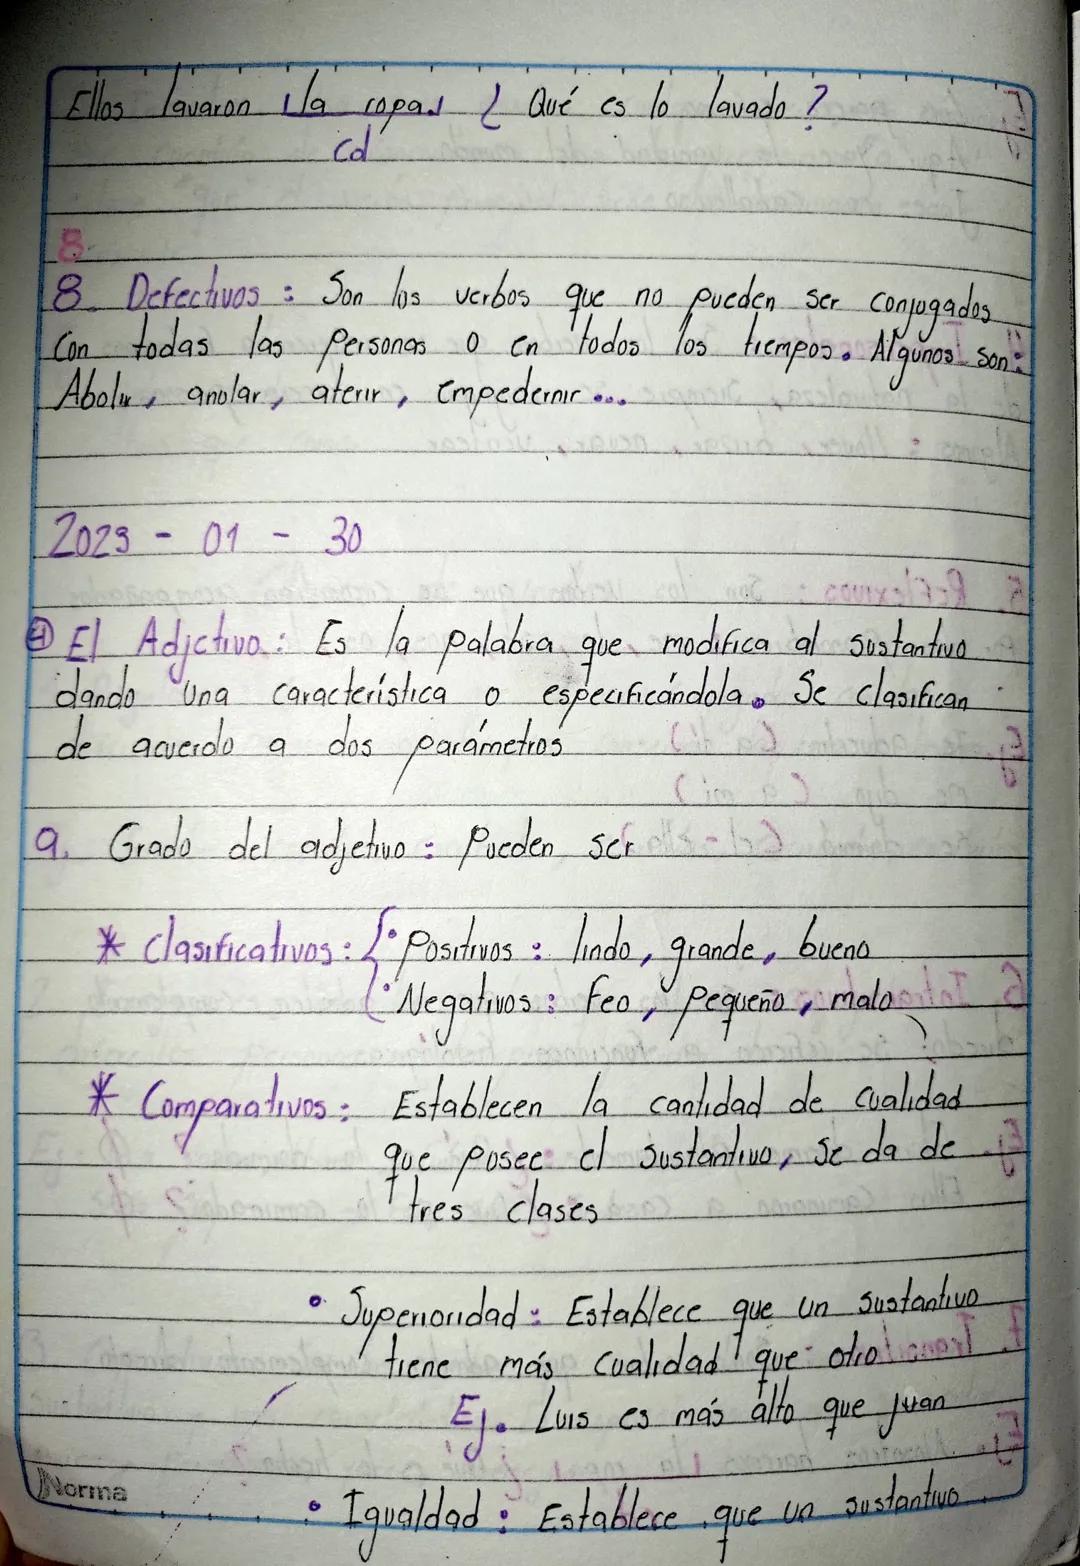 Ellos lavaron la ropa ¿ Qué es lo lavado ?
Cd
8
8. Defectivos : Son los verbos que no pueden ser conjugados
Con todas las personas o en todos los tiempos. Algunos son:
Abolir, anolar, aterir, empedernir ...
2023 - 01 - 30
El Adjctivo : Es la palabra que modifica al sustantivo
dando una característica o especificándola. Se clasifican
de acuerdo a dos parámetros
a. Grado del adjetivo : Pueden ser
* Clasificativos : { • Positivos : lindo, grande, bueno
• Negativos : Feo, pequeño, malo
* Comparativos : Establecen la cantidad de cualidad
que posee el sustantivo, se da de
tres clases
• Superioridad : Establece que un sustantivo
tiene más cualidad que otro
Ej. Luis es más alto que juan
Norma
• Igualdad : Establece que un sustantivo